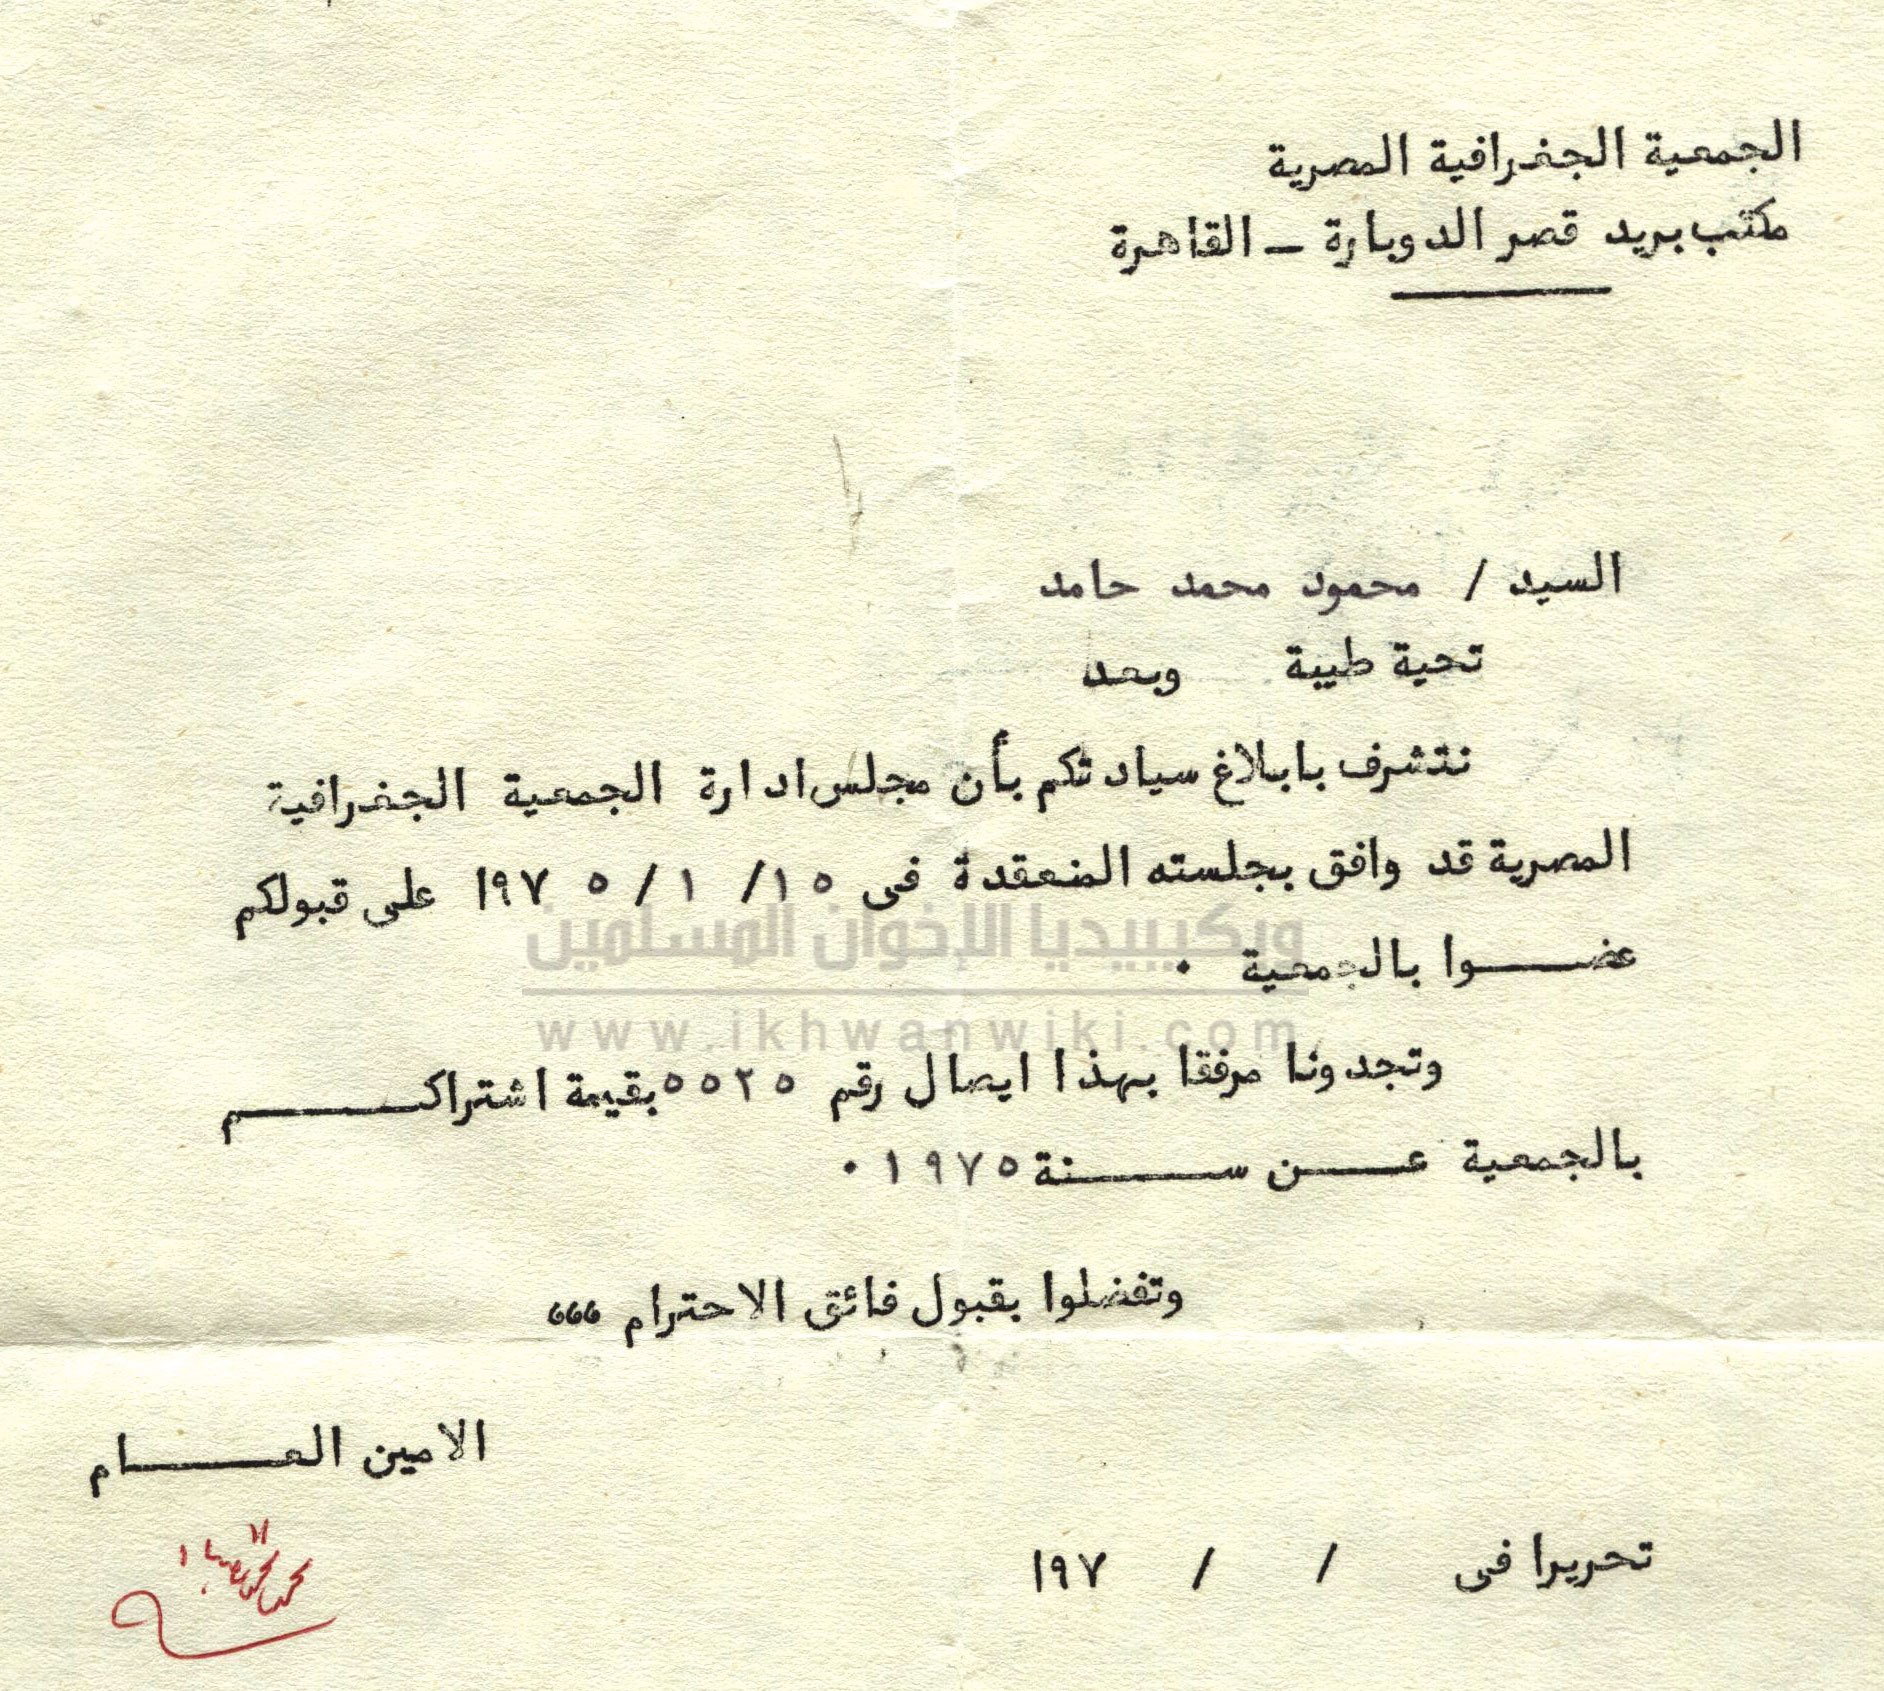 الجمعية الجغرافية المصرية
مكتب بريد قصر الدوبارة - القاهرة
السيد / محمود محمد حامد
تحية طيبة وبعد
نتشرف بابلاغ سيادتكم بأن مجلس ادارة الجمعية الجغرافية
المصرية قد وافق بجلسته المنعقدة فى ١٥ / ١ / ١٩٧٥ على قبولكم
عضـــوا بالجمعية ٠
ويكيبيديا الإخوان المسلمين
www.ikhwanwiki.com
وتجدونا مرفقا بهذا ايصال رقم ٥٥٢٥ بقيمة اشتراكـــــم
بالجمعية عـــن ســـنة ١٩٧٥ ٠
وتفضلوا بقبول فائق الاحترام ،،،
الامين العـــام
تحريرا فى / / ١٩٧